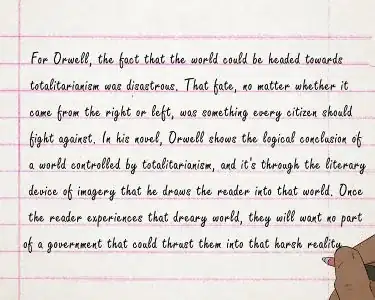 For Orwell, the fact that the world could be headed towards
totalitarianism was disastrous. That fate, no matter whether it
came from the right or left, was something every citizen should
fight against. In his novel, Orwell shows the logical conclusion of
a world controlled by totalitarianism, and it's through the literary
device of imagery that he draws the reader into that world. Once
the reader experiences that dreary world, they will want no part
of a government that could thrust them into that harsh reality